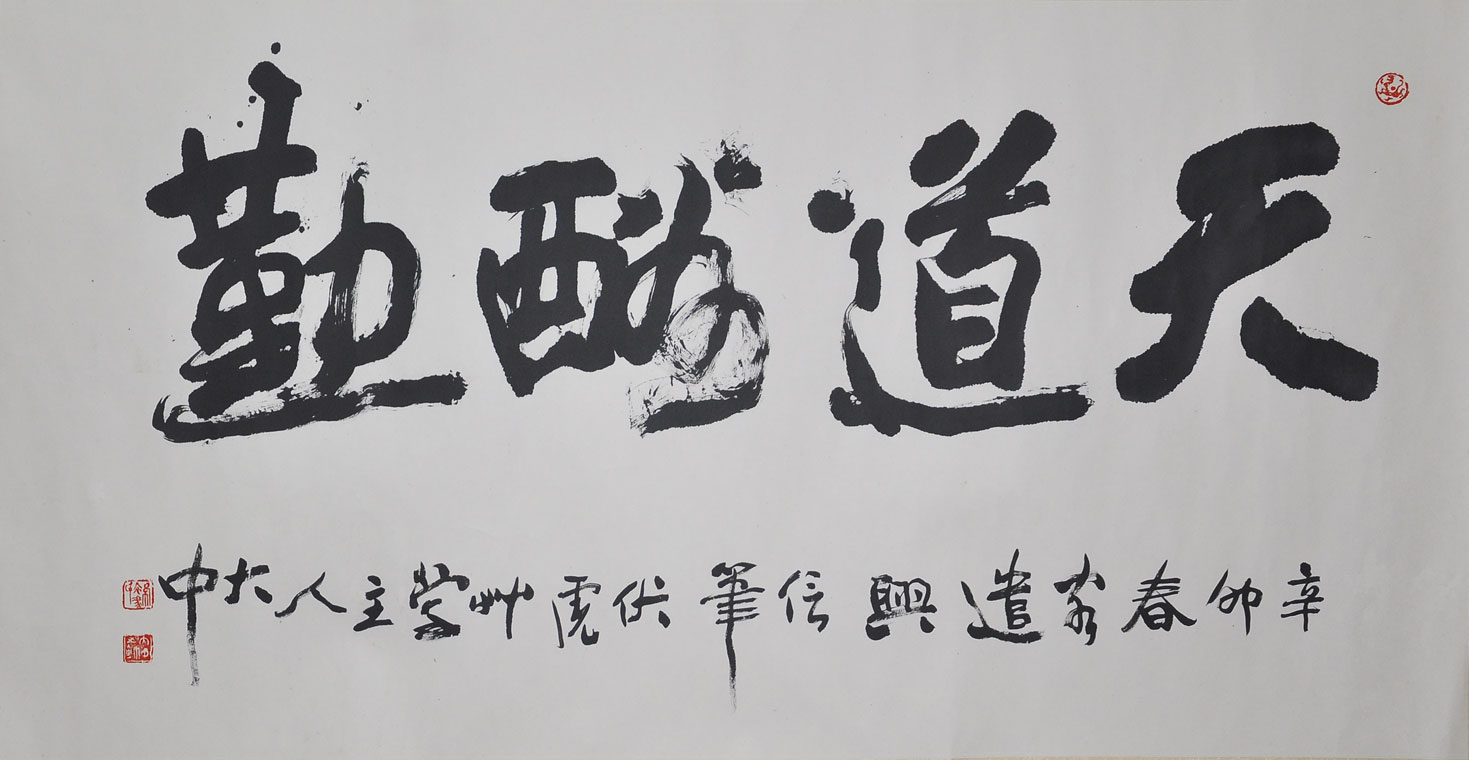 天道酬勤
辛卯春遣興信筆伏虎艸堂主人大中